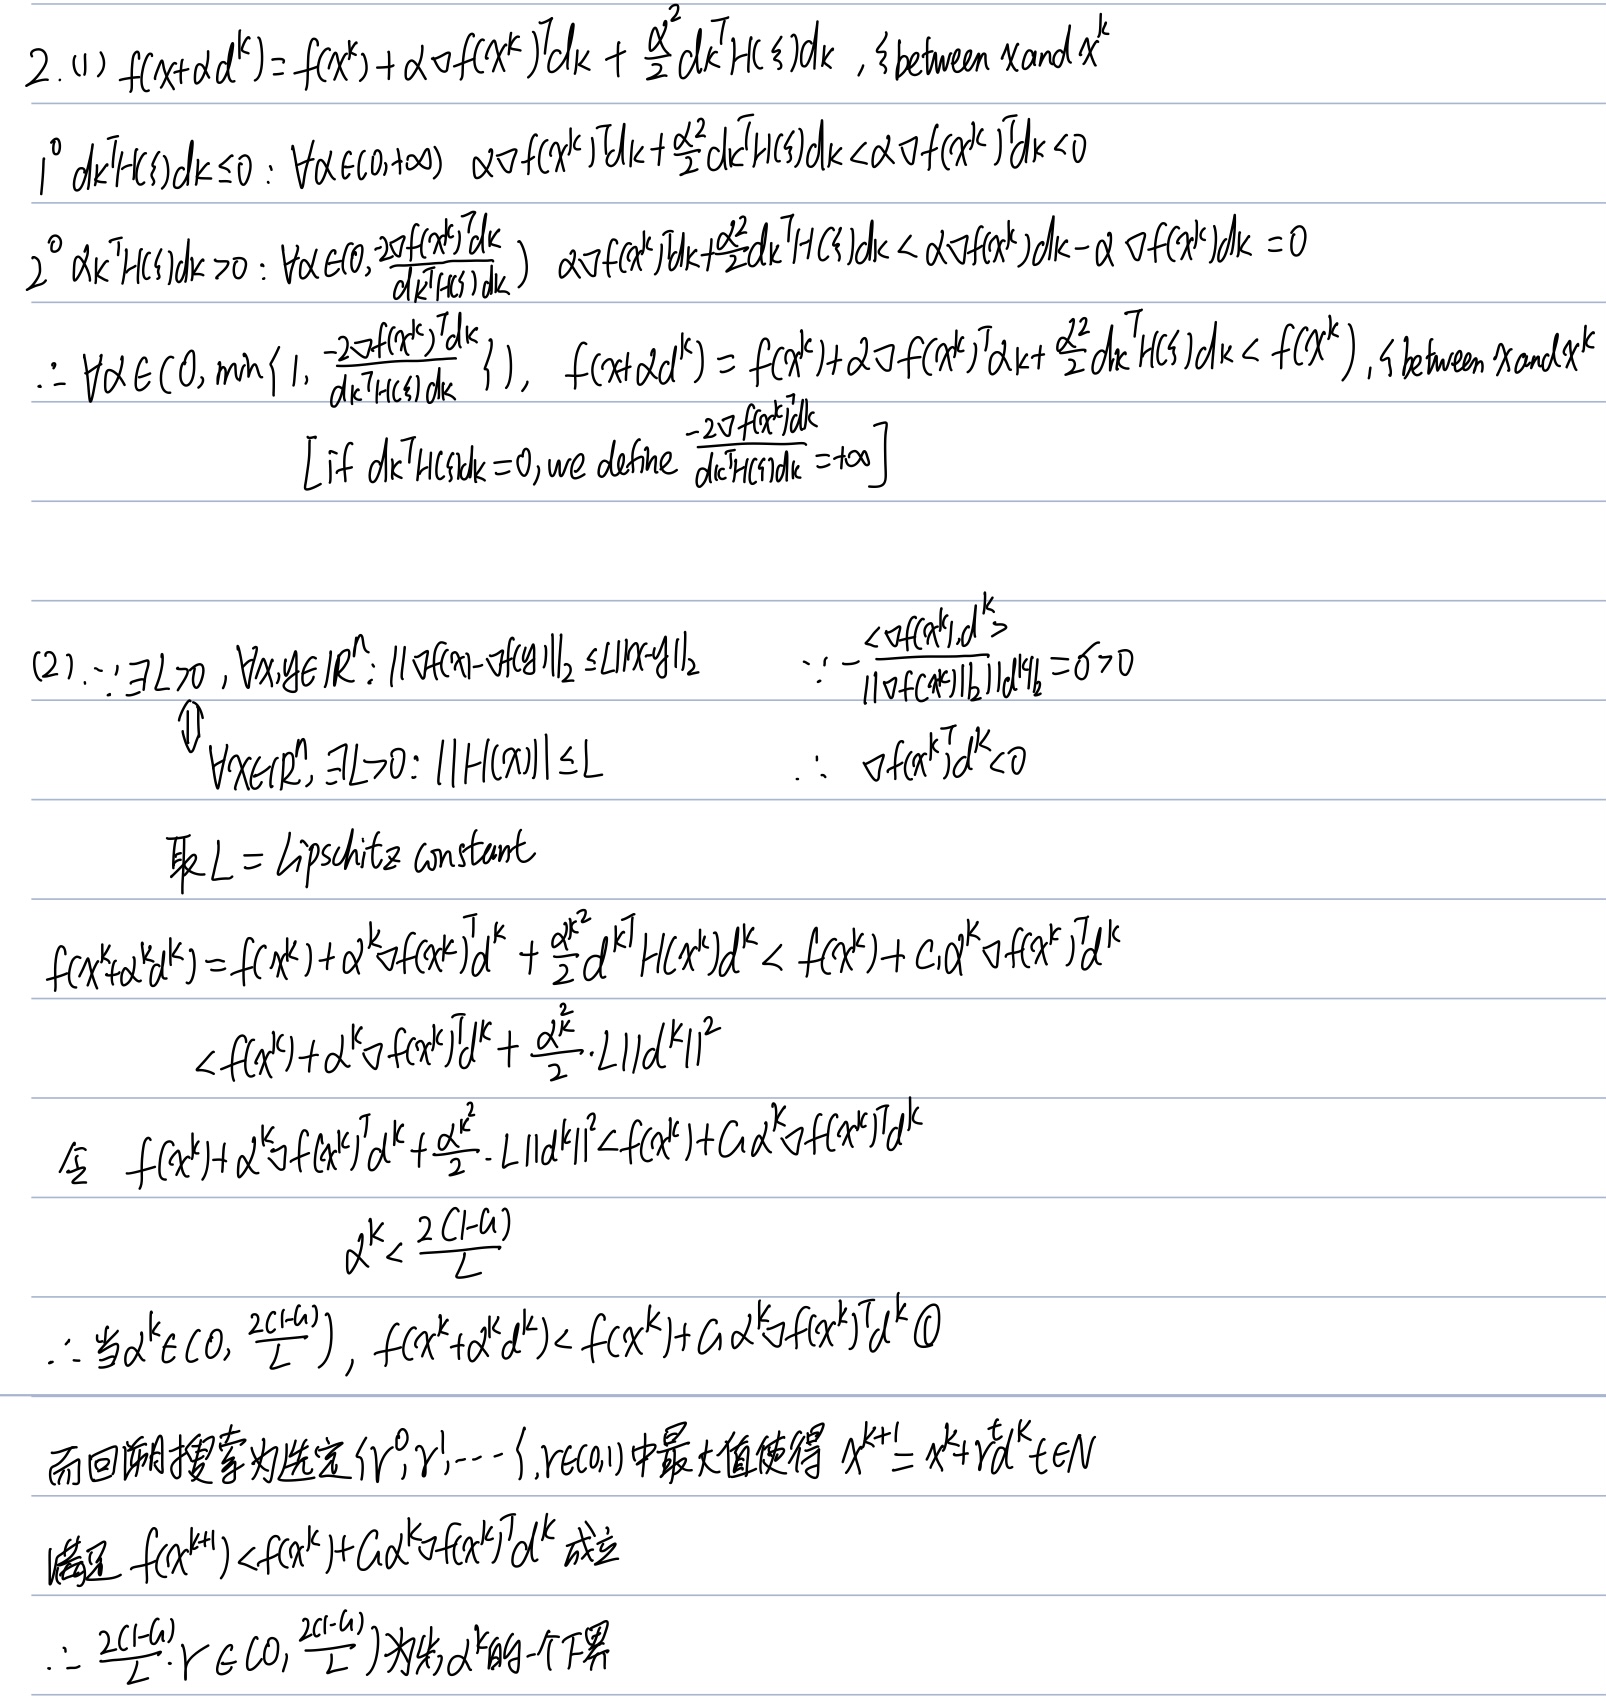 2.(1) f(x+αd^k)=f(x^k)+α∇f(x^k)^Tdk+α²/2 dk^TH(ξ)dk , ξ between x and x^k
1° dk^TH(ξ)dk≤0: ∀α∈(0,+∞) α∇f(x^k)^Tdk+α²/2 dk^TH(ξ)dk<α∇f(x^k)^Tdk<0
2° dk^TH(ξ)dk>0: ∀α∈(0, -2∇f(x^k)^Tdk/dk^TH(ξ)dk) α∇f(x^k)^Tdk+α²/2 dk^TH(ξ)dk<α∇f(x^k)dk-α∇f(x^k)dk=0
∴ ∀α∈(0, min{1, -2∇f(x^k)^Tdk/dk^TH(ξ)dk}), f(x+αd^k)=f(x^k)+α∇f(x^k)^Tdk+α²/2 dk^TH(ξ)dk<f(x^k), ξ between x and x^k
[if dk^TH(ξ)dk=0, we define -2∇f(x^k)^Tdk/dk^TH(ξ)dk=+∞]
(2).∵∃L>0, ∀x,y∈R^n: ||∇f(x)-∇f(y)||₂≤L||x-y||₂ ∵ -<∇f(x^k),d^k>/||∇f(x^k)||₂||d^k||₂=σ>0
⇕ ∀x∈R^n, ∃L>0: ||H(x)||≤L ∴ ∇f(x^k)^Td^k<0
取L=Lipschitz constant
f(x^k+α^kd^k)=f(x^k)+α^k∇f(x^k)^Td^k+α^k²/2 d^kTH(x^k)d^k<f(x^k)+C₁α^k∇f(x^k)^Td^k
<f(x^k)+α^k∇f(x^k)^Td^k+α^k²/2·L||d^k||²
令 f(x^k)+α^k∇f(x^k)^Td^k+α^k²/2·L||d^k||²<f(x^k)+C₁α^k∇f(x^k)^Td^k
α^k<2(1-C₁)/L
∴当α^k∈(0, 2(1-C₁)/L), f(x^k+α^kd^k)<f(x^k)+C₁α^k∇f(x^k)^Td^k ①
而回溯搜索为选定{r⁰,r¹,---},r∈(0,1)中最大值使得 x^{k+1}=x^k+r^td^k t∈N
满足 f(x^{k+1})<f(x^k)+C₁α^k∇f(x^k)^Td^k 成立
∴ 2(1-C₁)/L·r∈(0, 2(1-C₁)/L)为α^k的一个下界